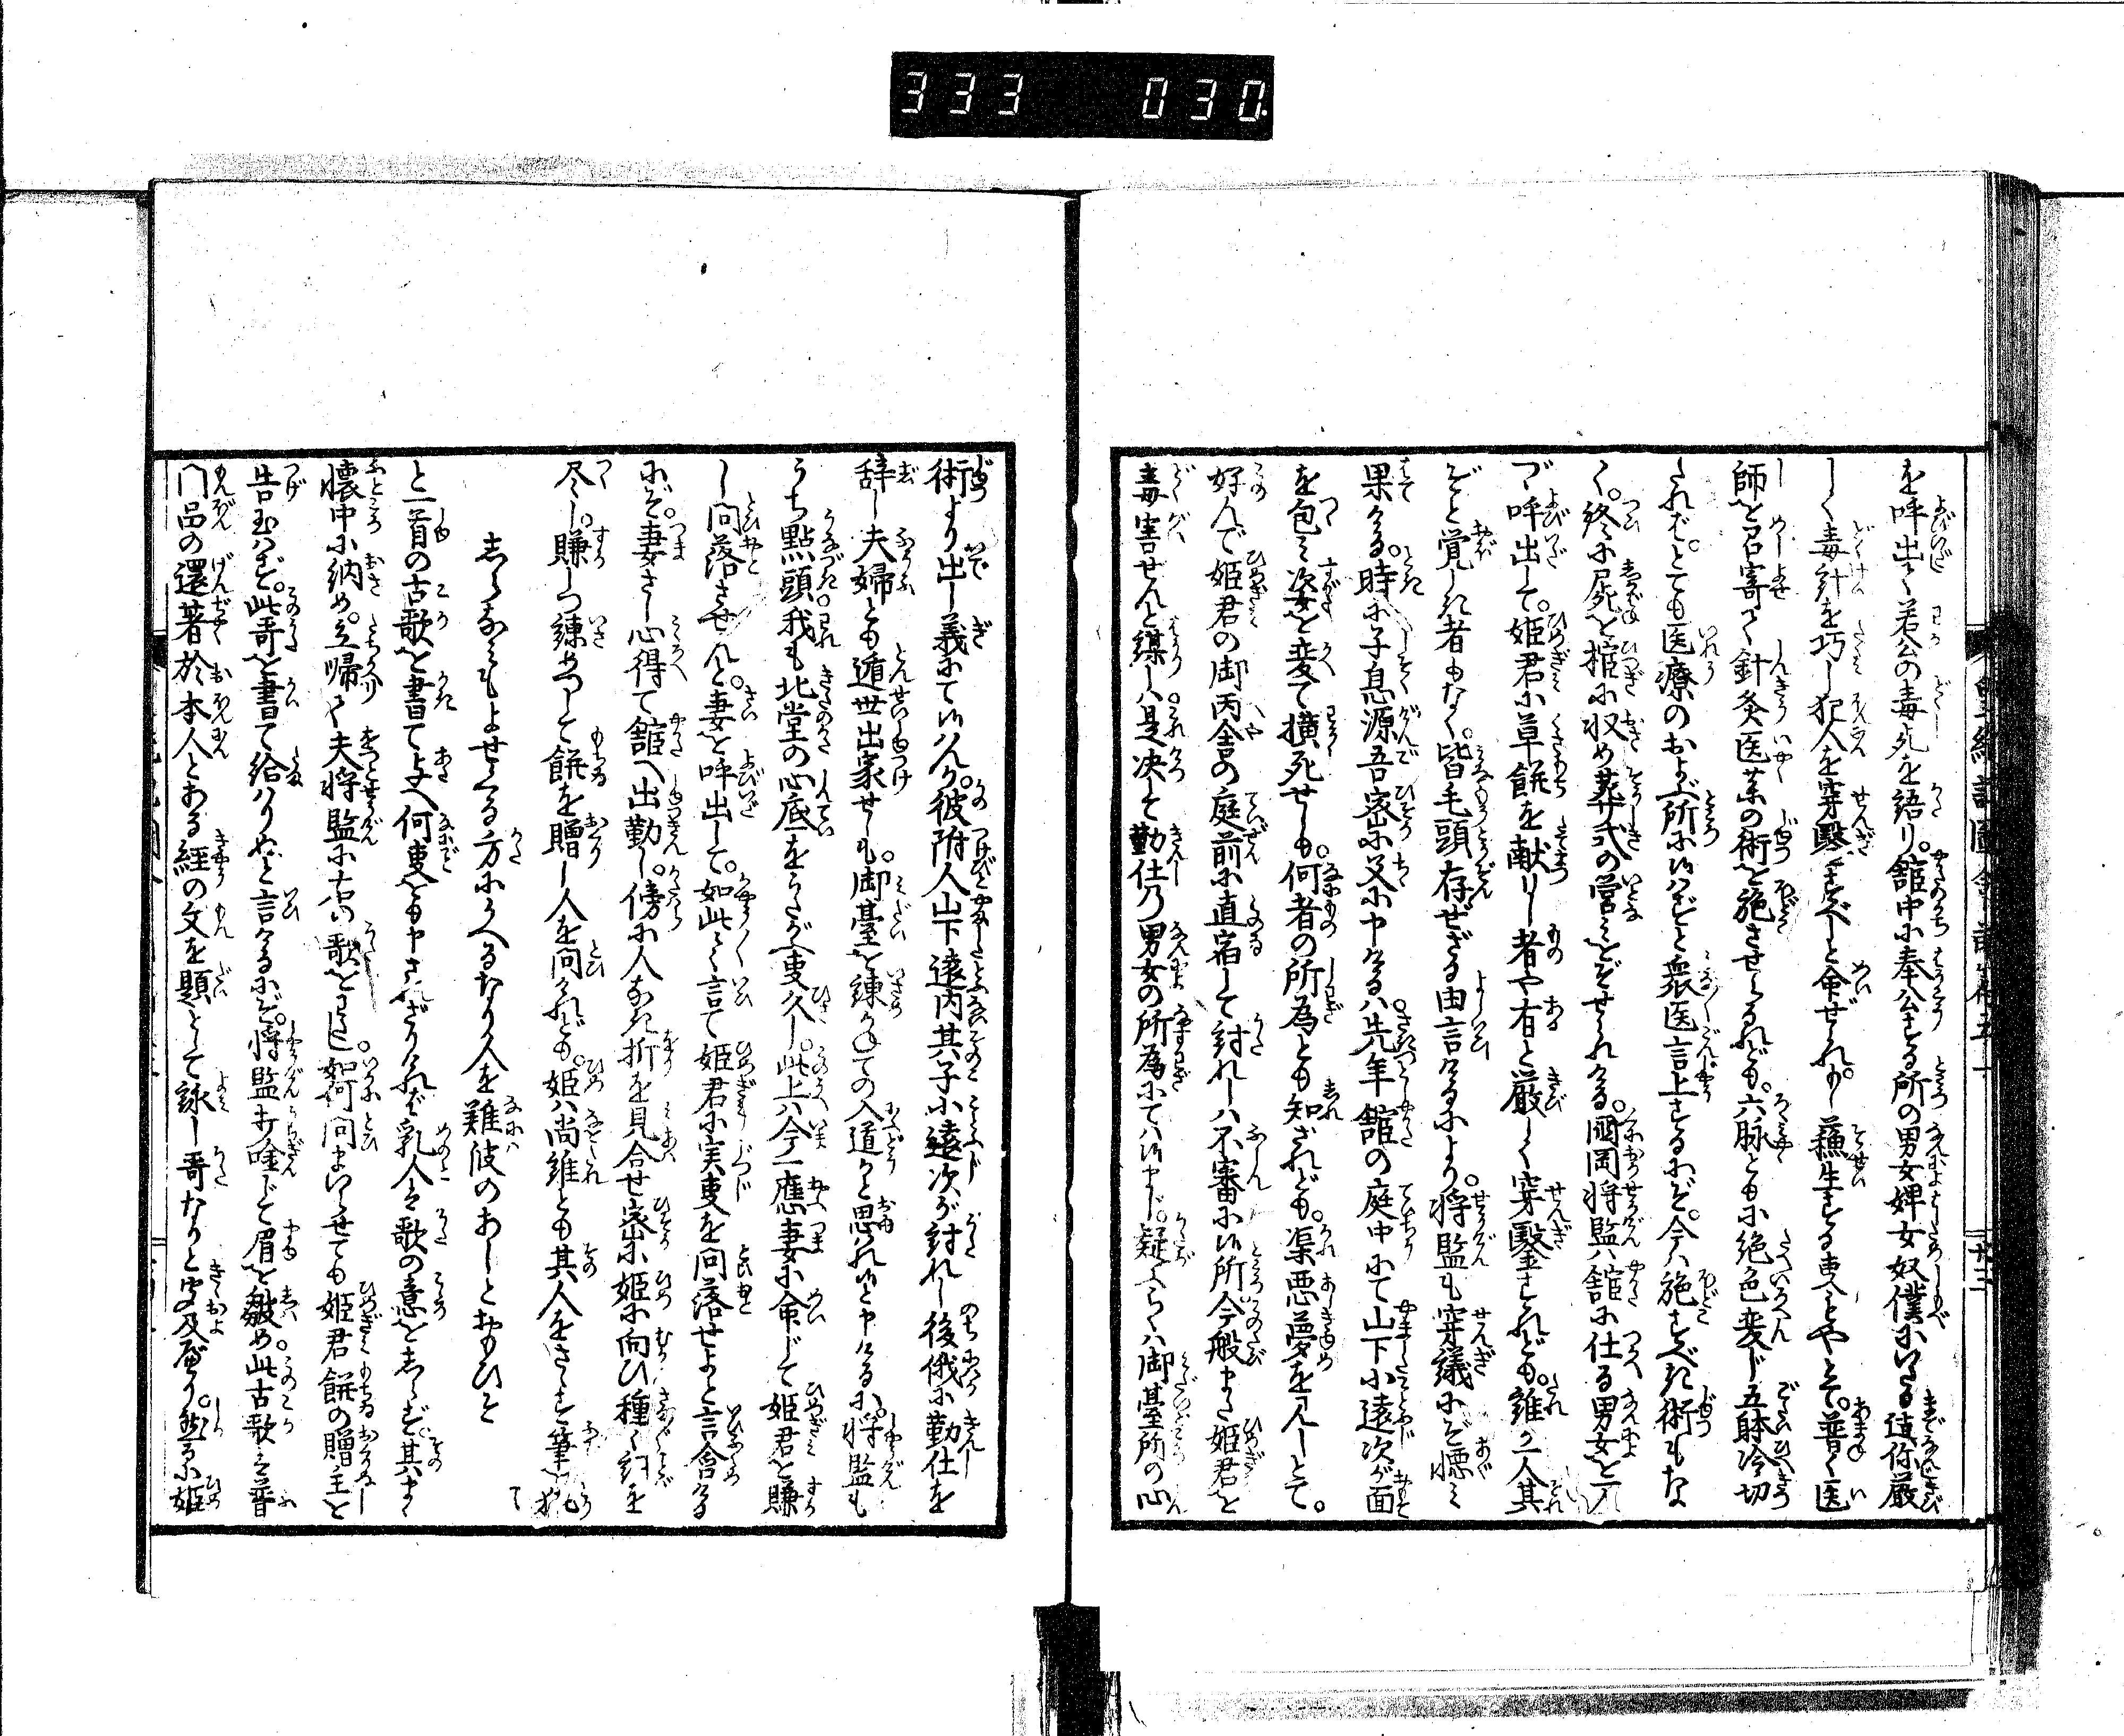 333 030
を呼出て若公の毒死を語り。舘中に奉公する所の男女婢女奴僕にいたる迄弥厳
しく毒計を巧し犯人を穿鑿すべしと命ぜられ。もし蘓生する事もやとて。普く医
師を召寄て針灸医薬の術を施させらるれども。六脉ともに絶色変じ五躰冷切
たれば。とても医療のおよぶ所に候はずと衆医言上するにぞ。今は施すべき術もな
く。終に屍を棺に収め葬式の営みをぞせられける。岡将監ハ舘に仕る男女を一人
づゝ呼出して。姫君に草餅を献りし者や有と厳しく穿鑿すれども。誰一人其
ぞと覚しき者もなく。皆毛頭存ぜざる由言けるにより。将監も穿議にぞ
果ける。時に子息源吾密に父に申けるハ先年舘の庭中にて山下小遠次が面
を包ミ姿を変て横死せしも。何者の所為とも知ざれども。渠悪夢を見しとて。
好んで姫君の御丙舎の庭前に直宿して討れしハ不審に候所今般また姫君を
毒害せんと謀しハ是决して勤仕の男女の所為にてハ候まじ。疑ふらくハ御臺所の心
術より出し義にて候はんか。彼附人山下遠内其子小遠次が討れし後俄に勤仕を
辞し夫婦とも遁世出家せしも。御臺を諫かねての入道かと思れ候と申けるに。将監も
うち點頭。我も北堂の心底をうたがふ事久し。此上ハ今一應妻に命じて姫君を賺
し問落させんと。妻を呼出して。如此〻言て姫君に実事を問落せよと言含ける
にぞ。妻さし心得て舘へ出勤し。傍に人なき折を見合せ密に姫に向ひ種〻詞を
尽し。賺しつ諫めつして餅を贈し人を問けれども。姫ハ尚誰とも其人をさゝず筆を把て
しらなみもよせくる方にかへるなり人を難波のあしとおもひそ
と一首の古歌を書て与へ何事をも申されざりければ乳人は歌の意をしらず。其まゝ
懐中に納め。立帰りて夫将監に右の歌をわたし。如何問まいらせても姫君餅の贈主を
告玉はず。此哥を書て給はりぬと言けるにぞ。将監打吟じて眉を皺め。此古歌ハ普
門品の還著於本人とある経の文を題として詠し哥なりと聞及びたり。然るに姫